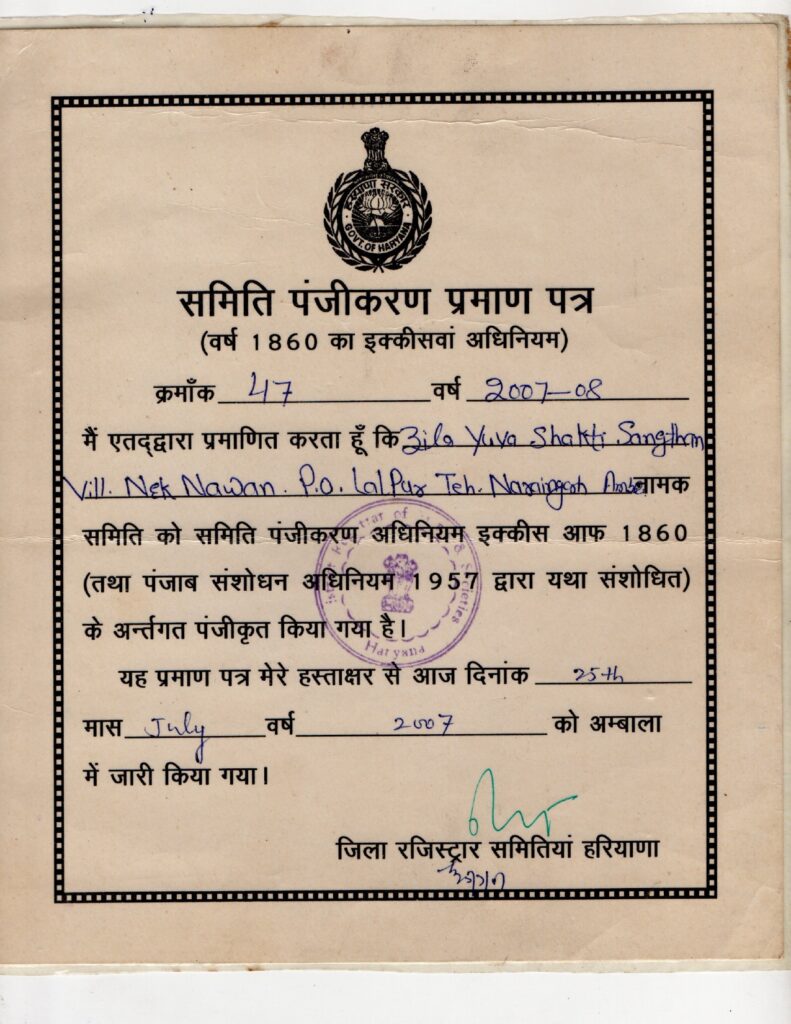 हरियाणा सरकार
GOVT. OF HARYANA
समिति पंजीकरण प्रमाण पत्र
(वर्ष 1860 का इक्कीसवां अधिनियम)
क्रमाँक 47 वर्ष 2007-08
मैं एतद्द्वारा प्रमाणित करता हूँ कि Zila Yuva Shakti Sangthan
Vill. Nek Nawan. P.O. Lalpur Teh. Naraingarh नामक
समिति को समिति पंजीकरण अधिनियम इक्कीस आफ 1860
(तथा पंजाब संशोधन अधिनियम 1957 द्वारा यथा संशोधित)
के अर्न्तगत पंजीकृत किया गया है।
Registrar of & Societies
Haryana
यह प्रमाण पत्र मेरे हस्ताक्षर से आज दिनांक 25th
मास July वर्ष 2007 को अम्बाला
में जारी किया गया।
जिला रजिस्ट्रार समितियां हरियाणा